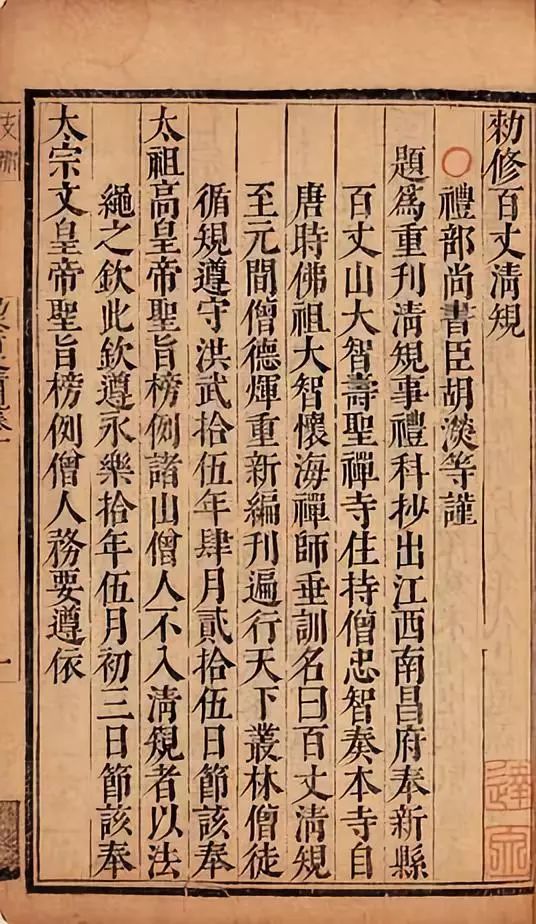 勑修百丈淸規
禮部尚書臣胡濙等謹
題爲重刊淸規事禮科抄出江西南昌府奉新縣
百丈山大智壽聖禪寺住持僧忠智奏本寺自
唐時佛祖大智懷海禪師垂訓名曰百丈淸規
至元間僧德煇重新編刊遍行天下叢林僧徒
循規遵守洪武拾伍年肆月貳拾伍日節該奉
太祖高皇帝聖旨榜例諸山僧人不入淸規者以法
繩之欽此欽遵永樂拾年伍月初三日節該奉
太宗文皇帝聖旨榜例僧人務要遵依